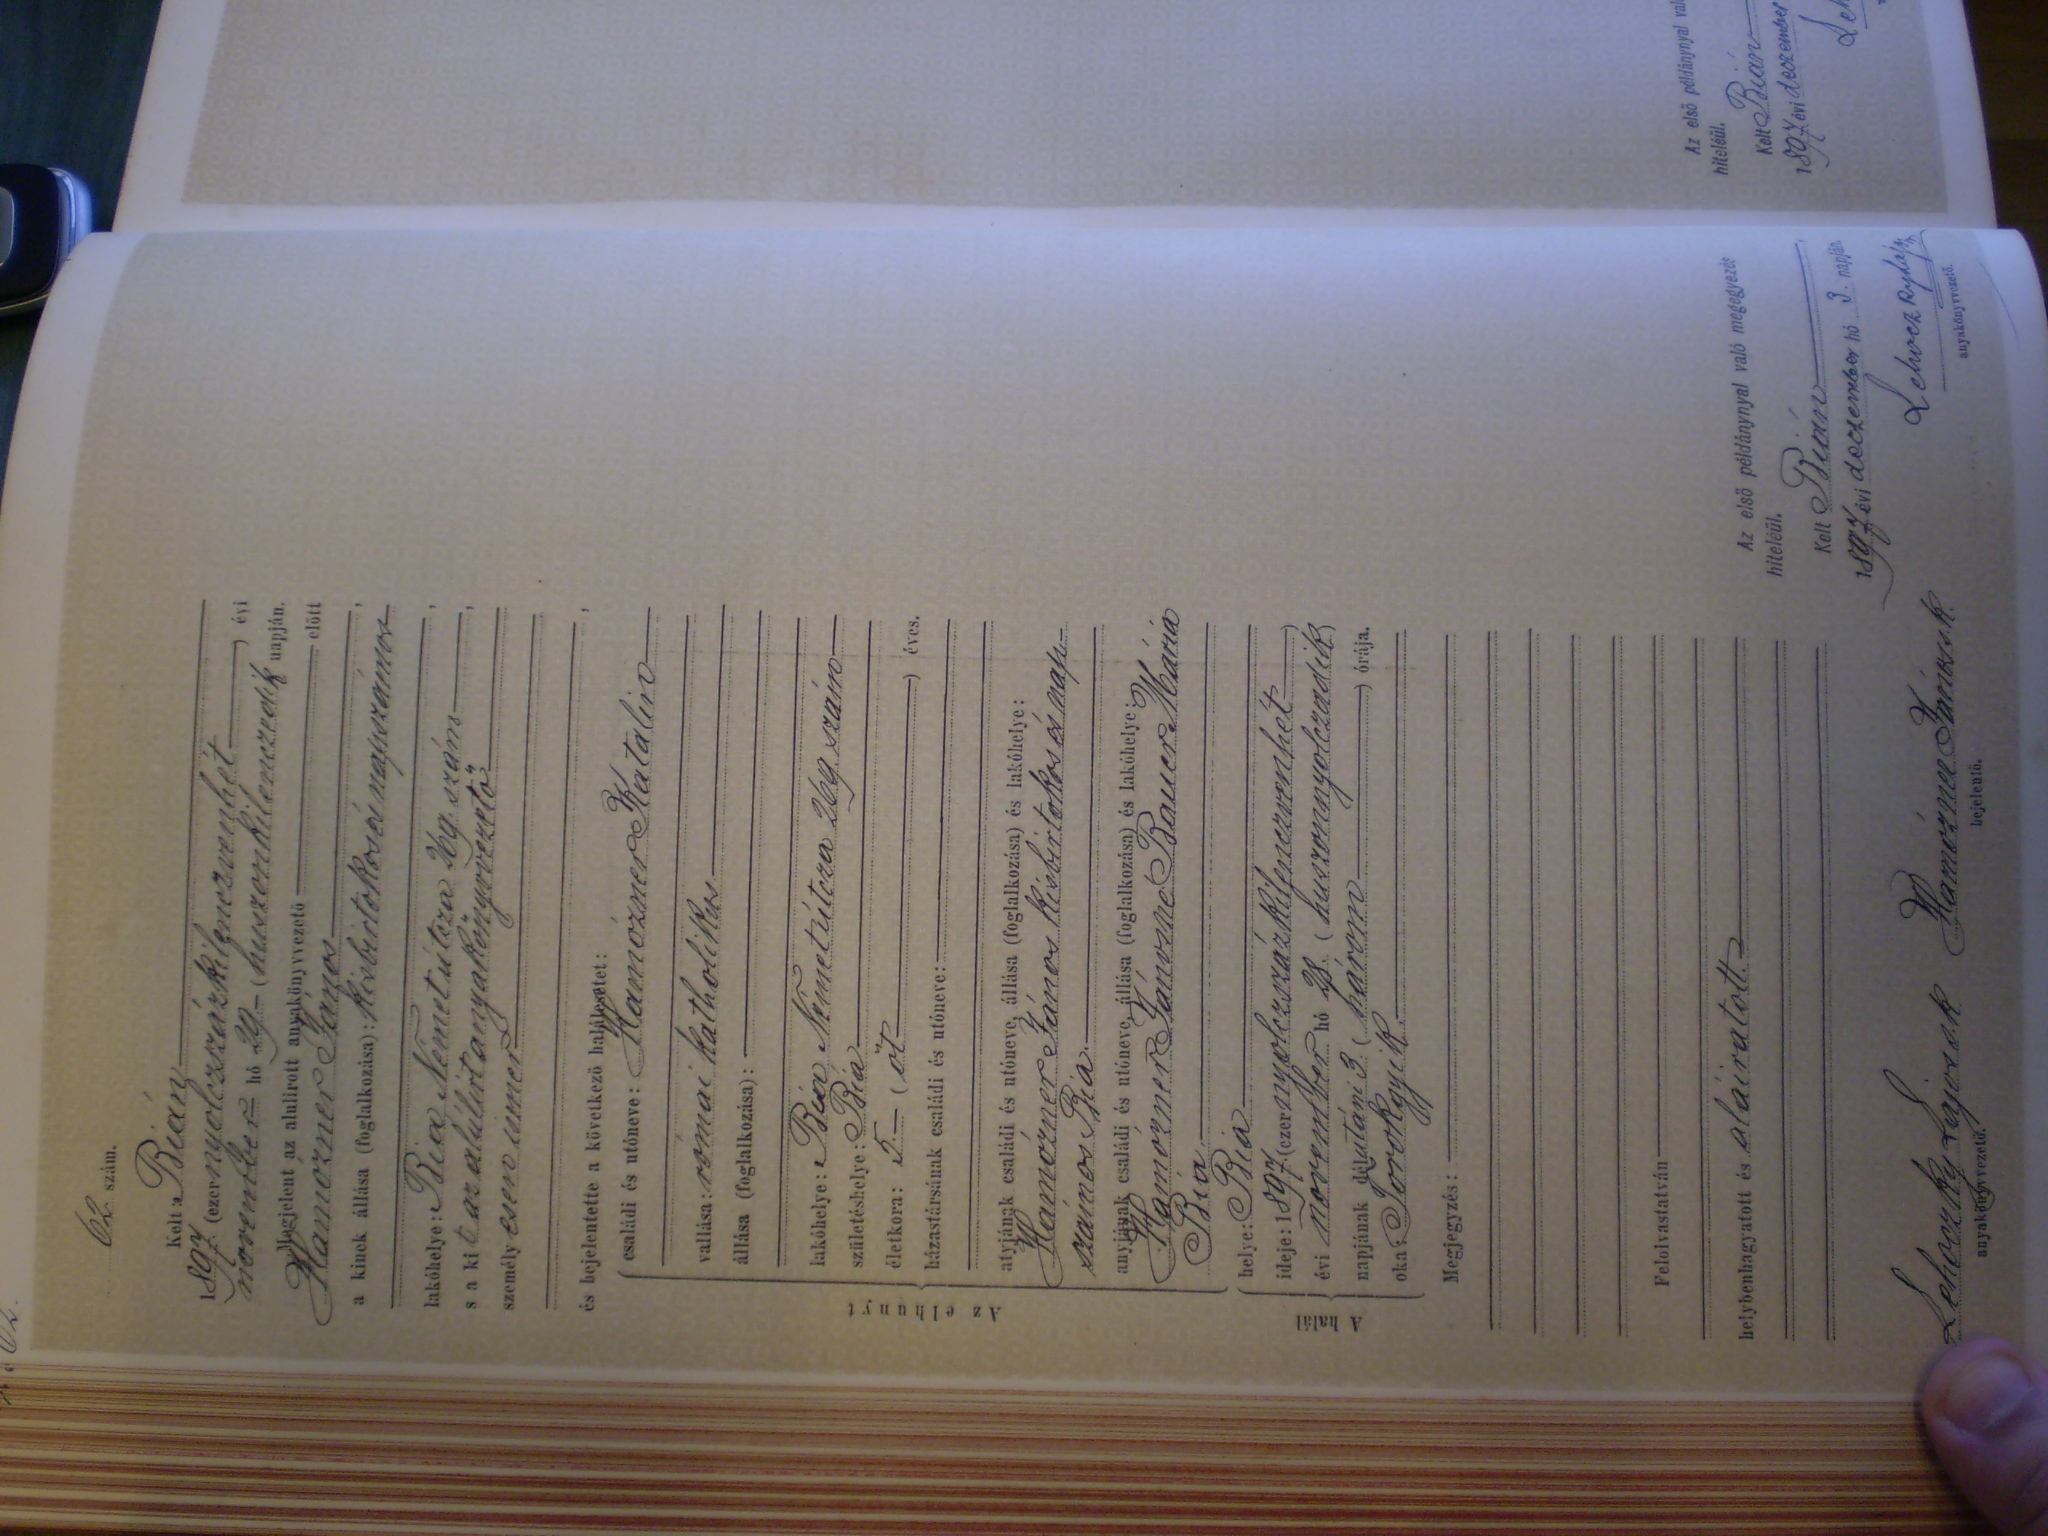 62. szám.
Kelt: Bián
1897 (ezernyolczszázkilenczvenhét) évi
november hó 29 (huszonkilenczedik) napján.
Megjelent az alulirott anyakönyvvezető előtt
Hamózner János
a kinek állása (foglalkozása): kisbirtokos és napszámos,
lakóhelye: Bia Németútcza 269. szám,
s a ki t az alúlirt anyakönyvvezető,
személyesen ismer
és bejelentette a következő halálesetet:
Az elhunyt
családi és utóneve: Hamózner Katalin
vallása: római katholikus
állása (foglalkozása):
lakóhelye: Bia Németútcza 269 szám
születéshelye: Bia
életkora: 5. (öt) éves.
házastársának családi és utóneve:
atyjának családi és utóneve, állása (foglalkozása) és lakóhelye:
Hamózner János kisbirtokos és nap-
számos Bia.
anyjának családi és utóneve, állása (foglalkozása) és lakóhelye:
Hamózner Jánosné Bauer Mária
Bia
A halál
helye: Bia
ideje: 1897 (ezernyolczszázkilenczvenhét)
évi november hó 28. (huszonnyolczadik)
napjának délutáni 3. (három) órája.
oka Torokgyík.
Megjegyzés:
Felolvastatván
helybenhagyatott és aláiratott.
Lehoczky Lajos s.k.
anyakönyvvezető.
Hamózner János s.k.
bejelentő.
Az első példánynyal való megegyezés
hiteléül.
Kelt Bián
1897 évi deczember hó 3. napján.
Lehoczky
anyakönyvvezető.
Az első példánynyal val
hiteléül.
Kelt Bián
1897 évi deczember
Leh